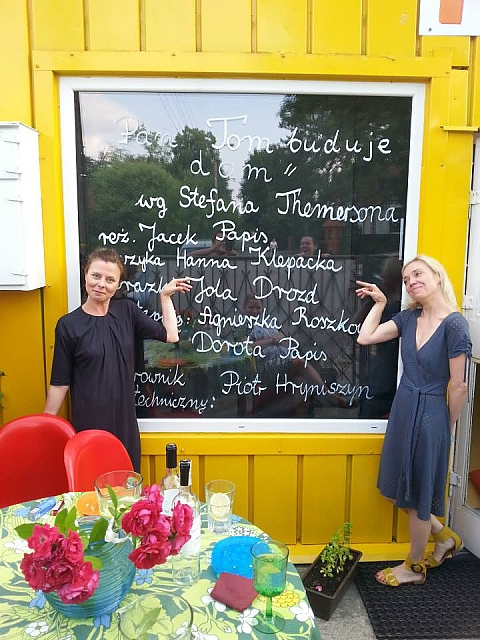 „Pan Tom buduje
dom"
wg Stefana Themersona
reż. Jacek Papis
zyka Hanna Klepacka
Jola Drozd
Agnieszka Roszko
Dorota Papis
rownik Piotr Hryniszyn
techniczny: